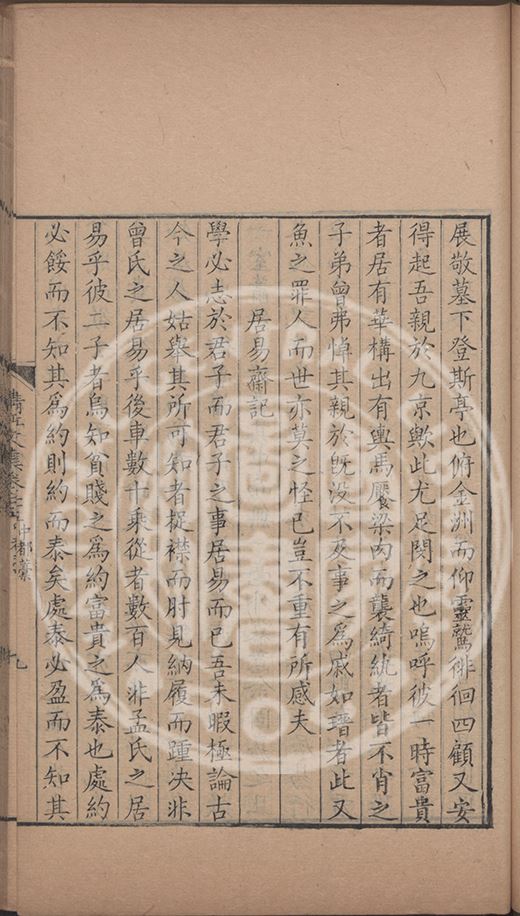 展敬墓下登斯亭也俯金洲而仰靈鷲徘徊四顧又安
得起吾親於九京歟此尤足閔之也嗚呼彼一時富貴
者居有華構出有輿馬饜梁肉而襲綺紈者皆不肖之
子弟曾弗悼其親於既没不及事之爲戚如瑨者此又
魚之罪人而世亦莫之怪已豈不重有所感夫
居易齋記
學必志於君子而君子之事居易而已吾未暇極論古
今之人姑舉其所可知者捉襟而肘見納履而踵决非
曾氏之居易乎後車數十乘從者數百人非孟氏之居
易乎彼二子者烏知貧賤之爲約富貴之爲泰也處約
必餒而不知其爲約則約而泰矣處泰必盈而不知其
文集卷之
中都藁
九